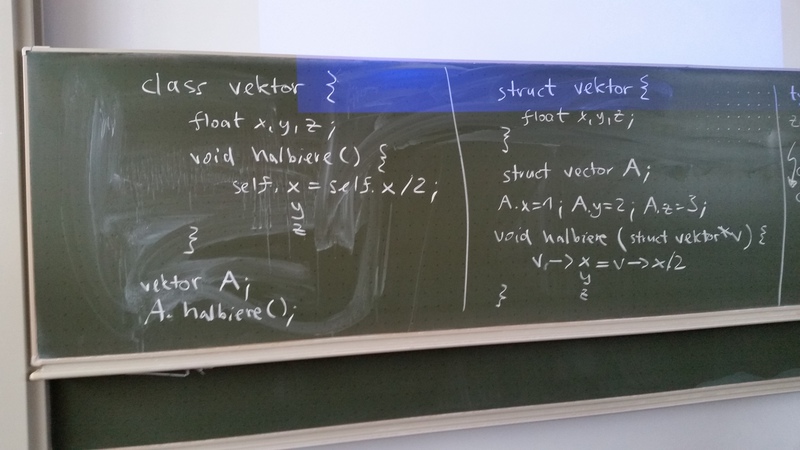 class vektor {
float x, y, z ;
void halbiere() {
self. x = self. x/2 ;
y
z
}
vektor A;
A. halbiere();
struct vektor {
float x, y, z;
}
struct vector A;
A.x=1; A.y=2; A.z=3;
void halbiere (struct vektor* v) {
v -> x = v -> x/2
y
z
}